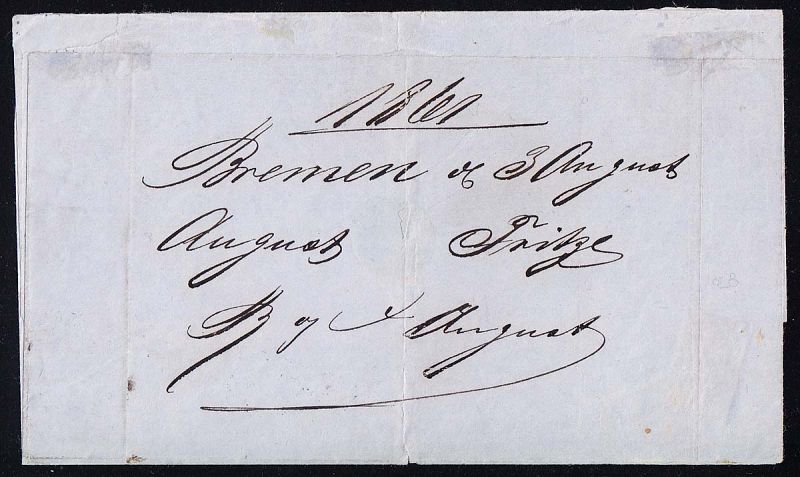 1861
Bremen d 3 August
August Fritze
B 4 August